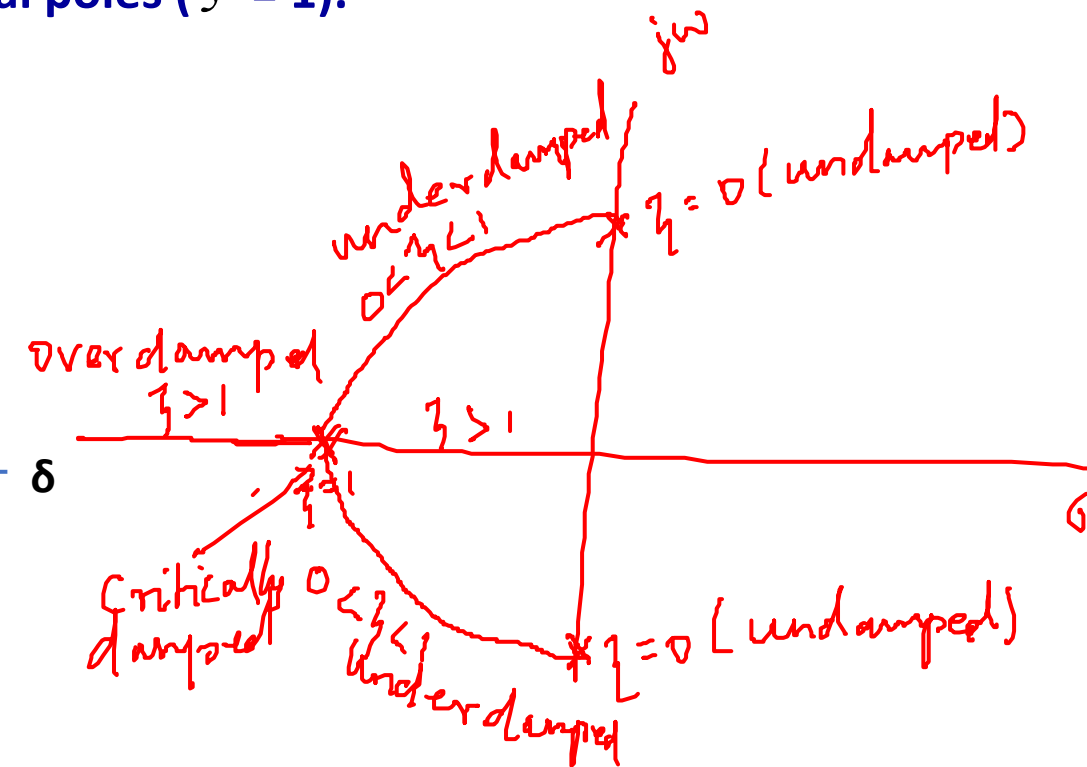 al poles ( ζ = 1).
jω
underdamped
0<ζ<1
ζ=0 (undamped)
overdamped
ζ>1
ζ>1
δ
ζ=1
σ
Critically
damped
0<ζ<1
underdamped
ζ=0 (undamped)